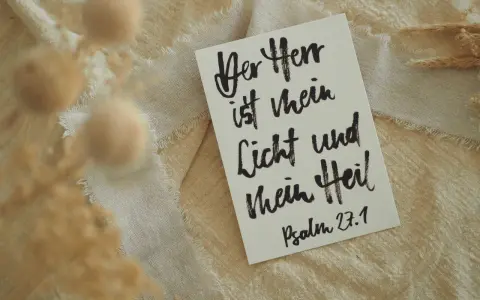 Der Herr
ist mein
Licht und
mein Heil
Psalm 27.1